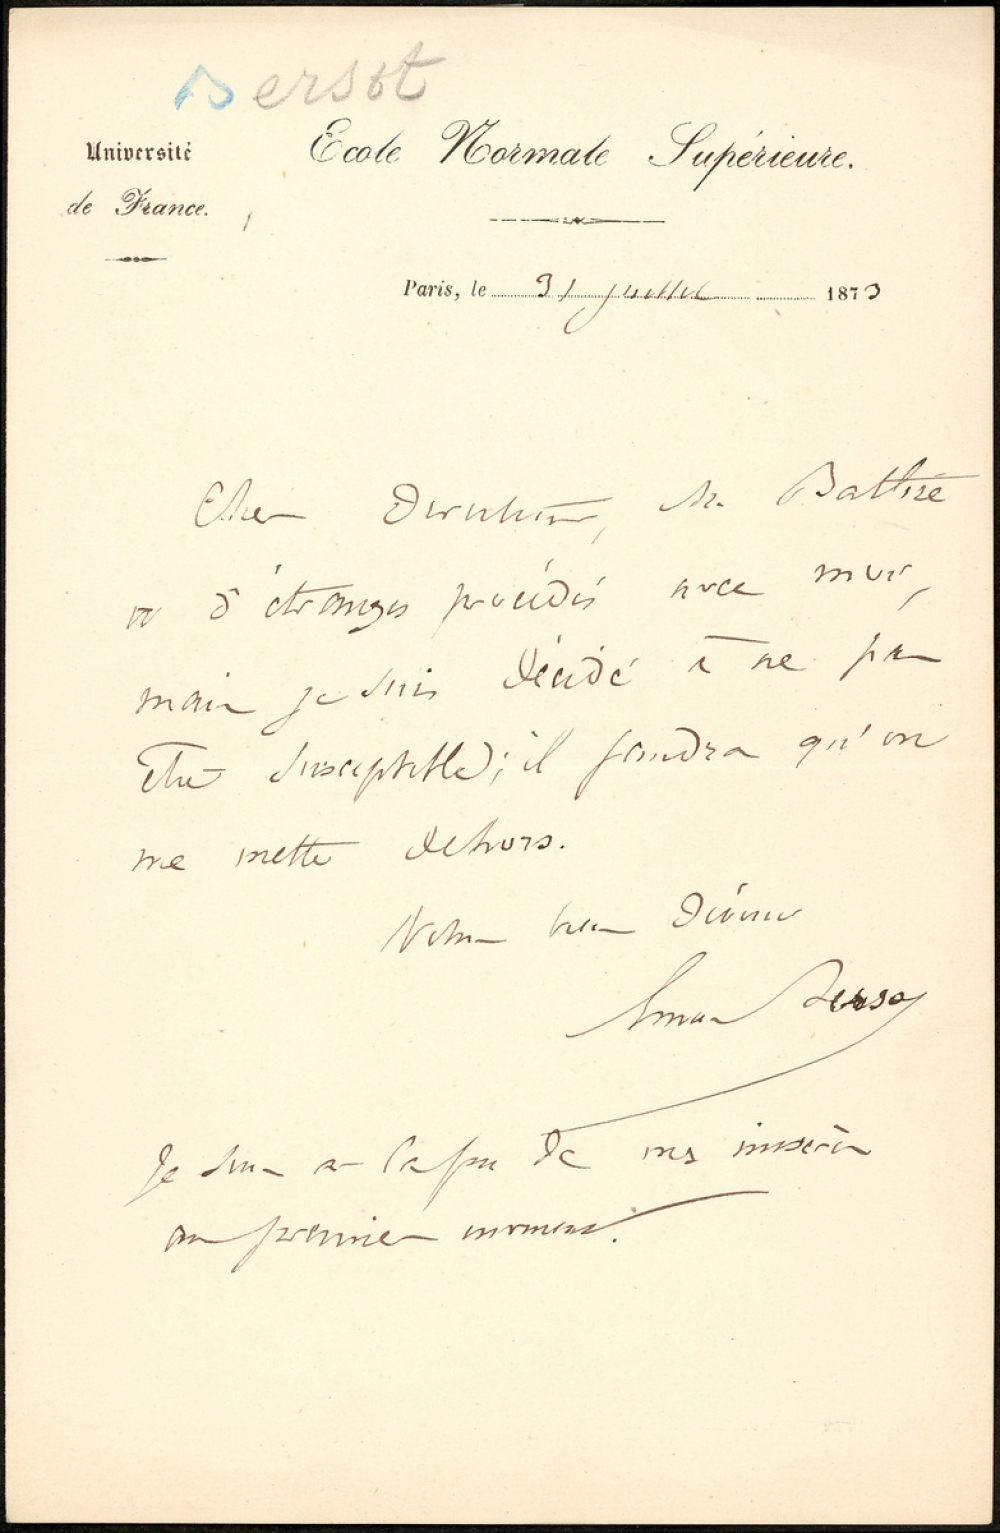 Bersot
Université
de France.
Ecole Normale Supérieure.
Paris, le 31 juillet 1873
Cher Directeur, M. Batbie
a d'étranges procédés avec moi,
mais je suis décidé à ne pas
être susceptible; il faudra qu'on
me mette dehors.
Votre bien dévoué
Bersot
Je suis de mes misères
au premier moment.